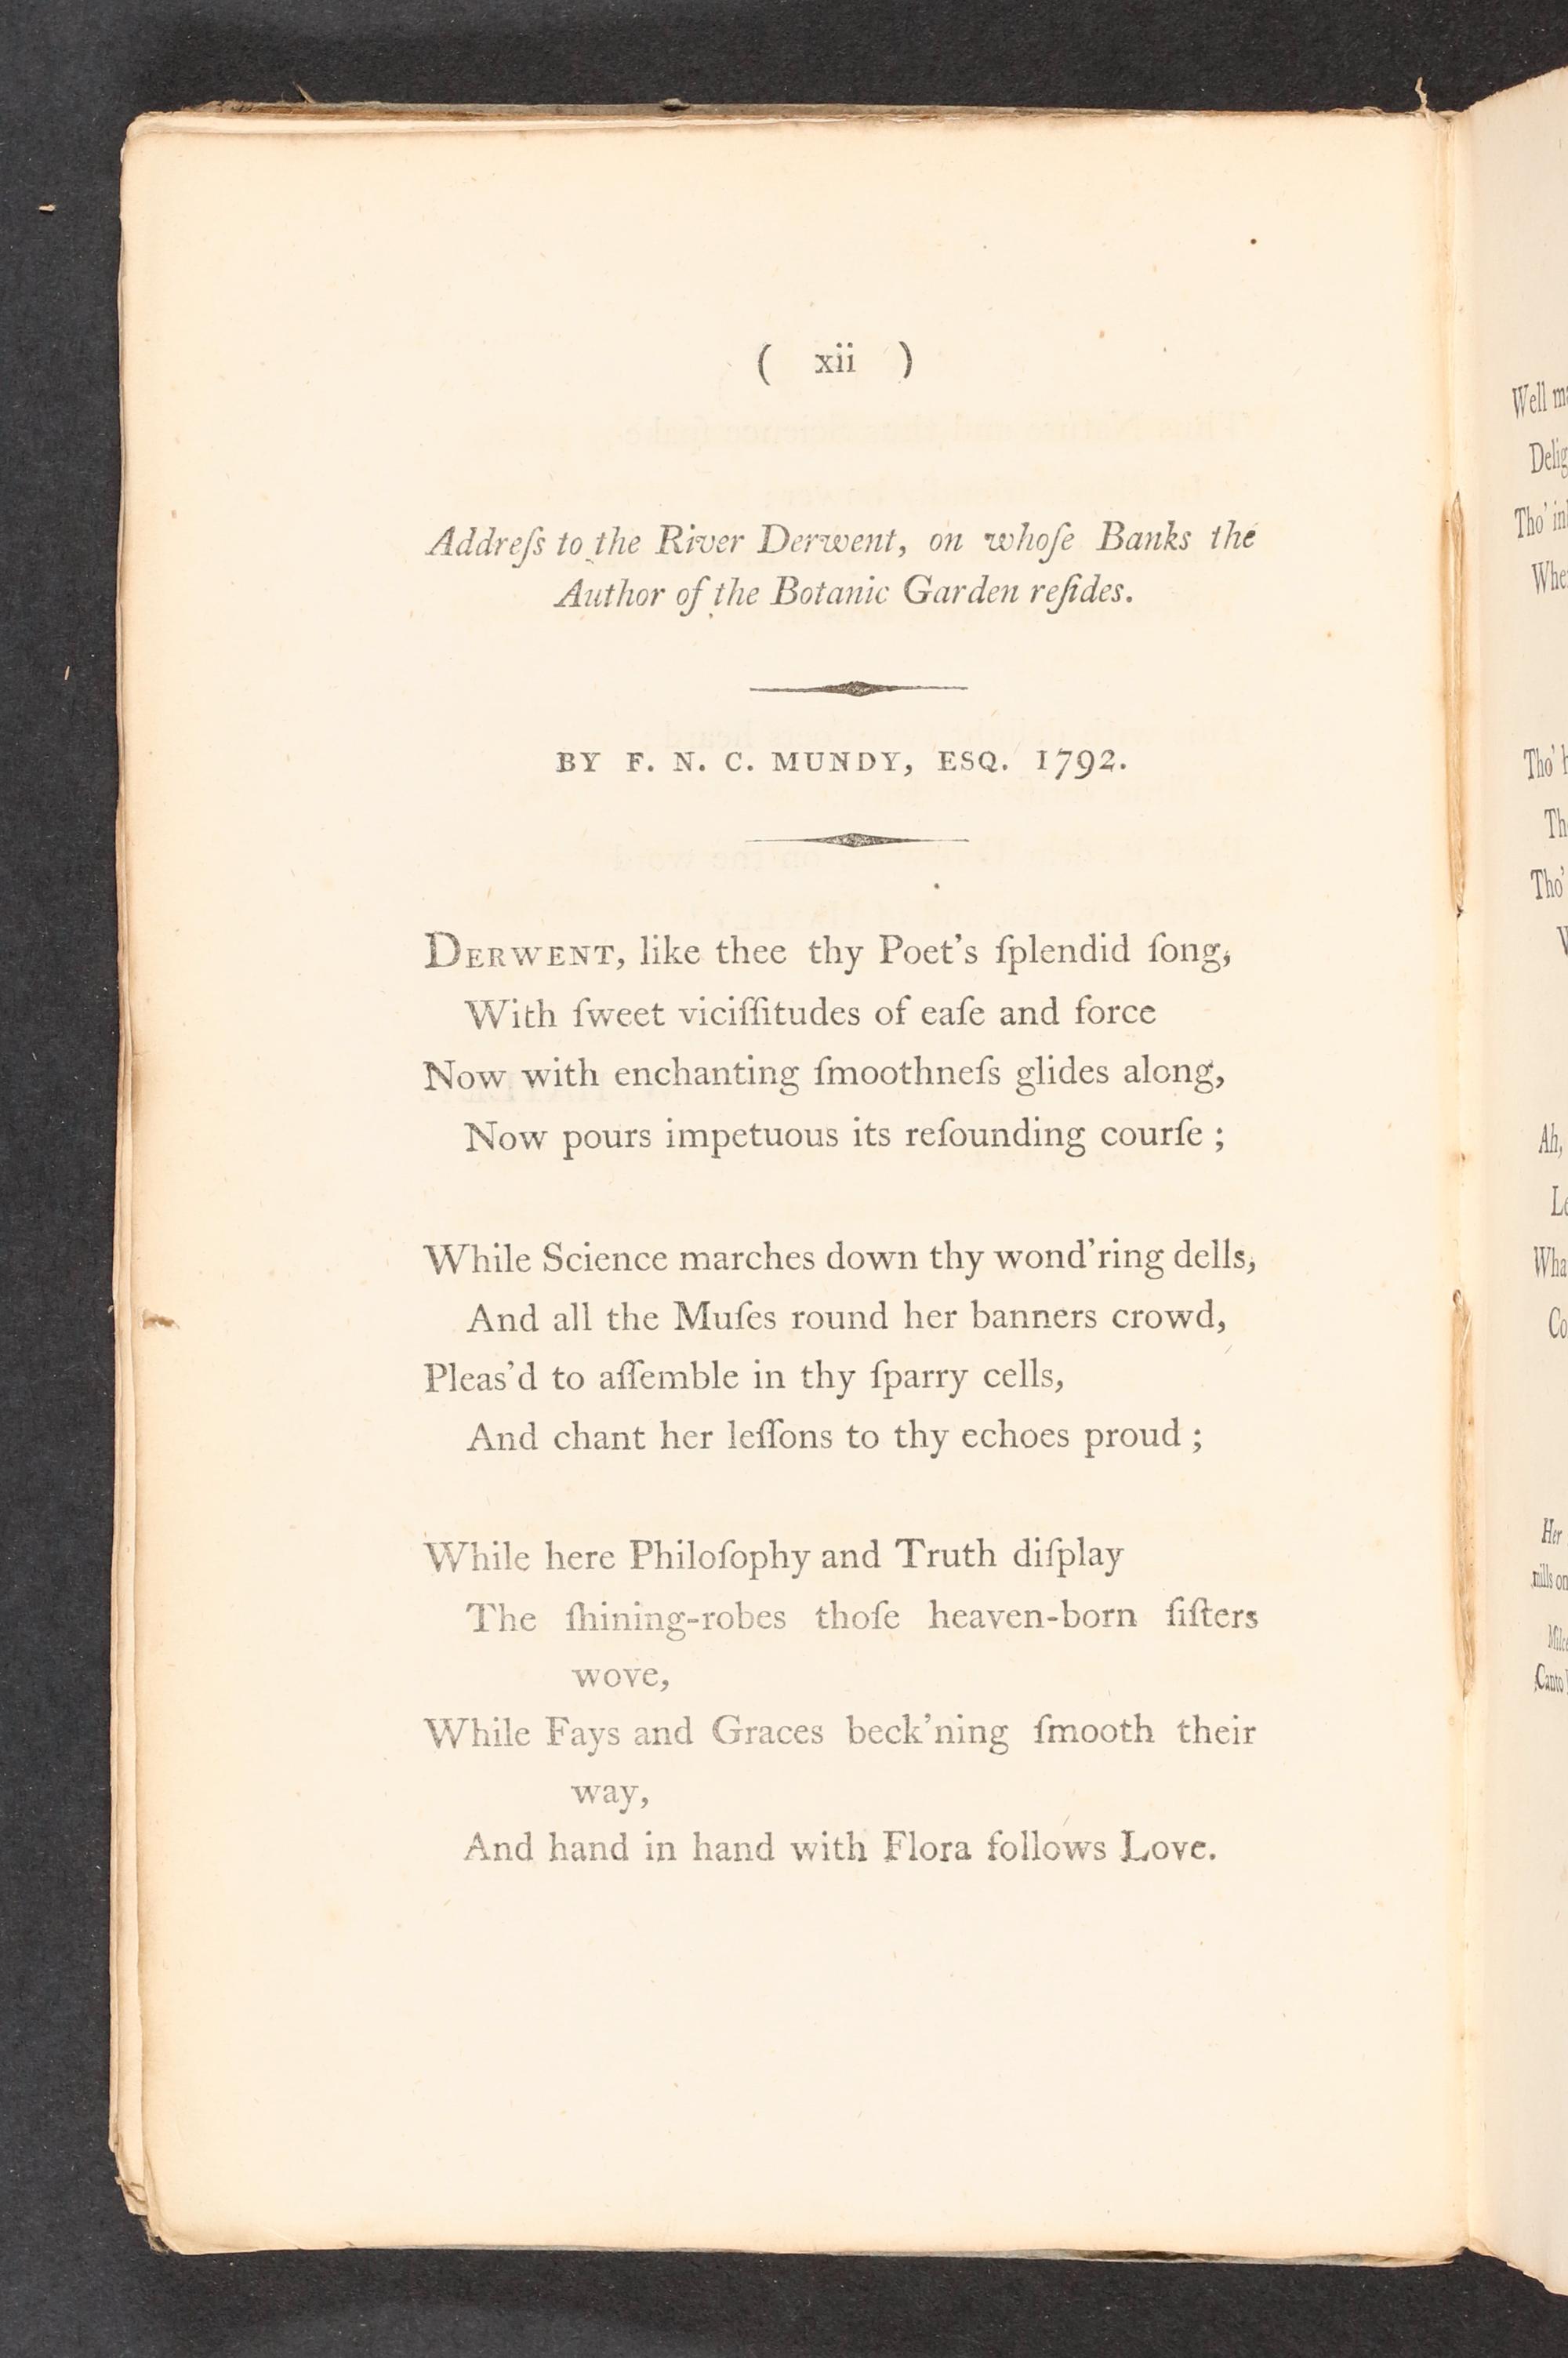 ( xii )
Addreſs to the River Derwent, on whoſe Banks the
Author of the Botanic Garden reſides.
BY F. N. C. MUNDY, ESQ. 1792.
DERWENT, like thee thy Poet's ſplendid ſong,
With ſweet viciſſitudes of eaſe and force
Now with enchanting ſmoothneſs glides along,
Now pours impetuous its reſounding courſe ;
While Science marches down thy wond'ring dells,
And all the Muſes round her banners crowd,
Pleas'd to aſſemble in thy ſparry cells,
And chant her leſſons to thy echoes proud ;
While here Philoſophy and Truth diſplay
The ſhining-robes thoſe heaven-born ſiſters
wove,
While Fays and Graces beck'ning ſmooth their
way,
And hand in hand with Flora follows Love.
Well
Tho'
Tho'
Tho'
Ah,
Her